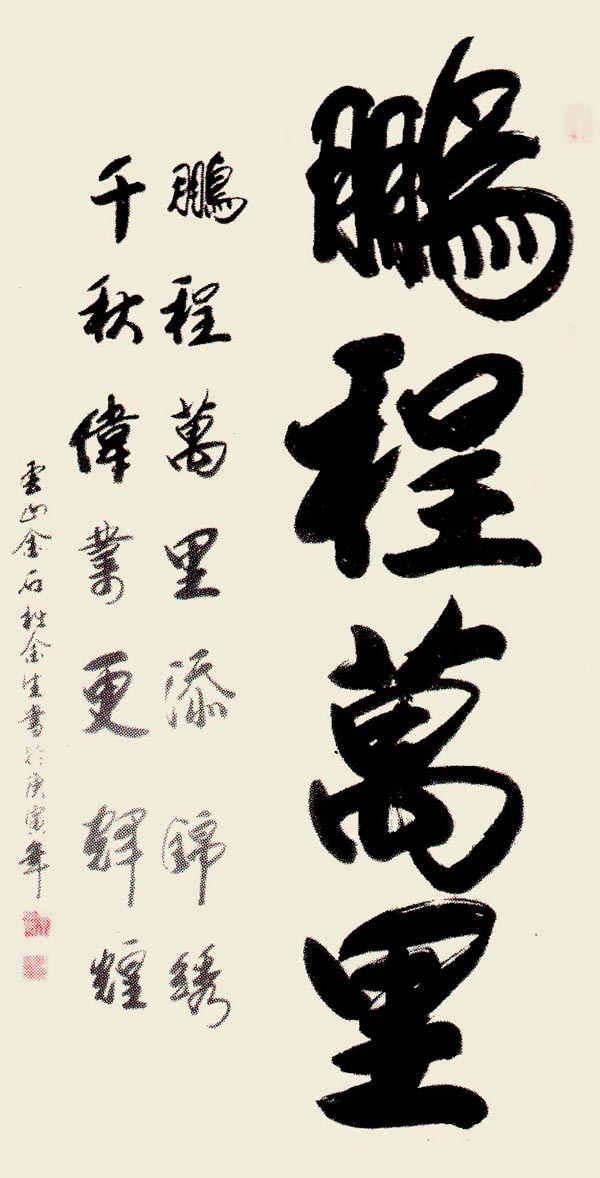 鵬程萬里
鵬程萬里添錦綉
千秋偉業更輝煌
雲山金石 金生書於庚寅年